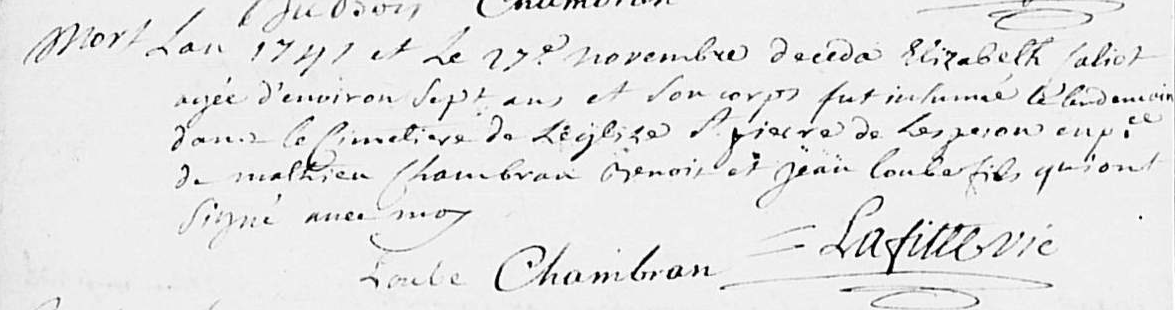 Chambran
Mort Lan 1741 et Le 27e novembre deceda Elizabeth Saliot
agée d'environ Sept ans et Son corps fut inhumé le lendemain
dans le Cimetiere de L'eglize St pierre de Lesperon en p.ce
de mathieu Chambran Benoit et jean loube fils qui ont
Signé avec moy
Loube Chambran Lafitte vic